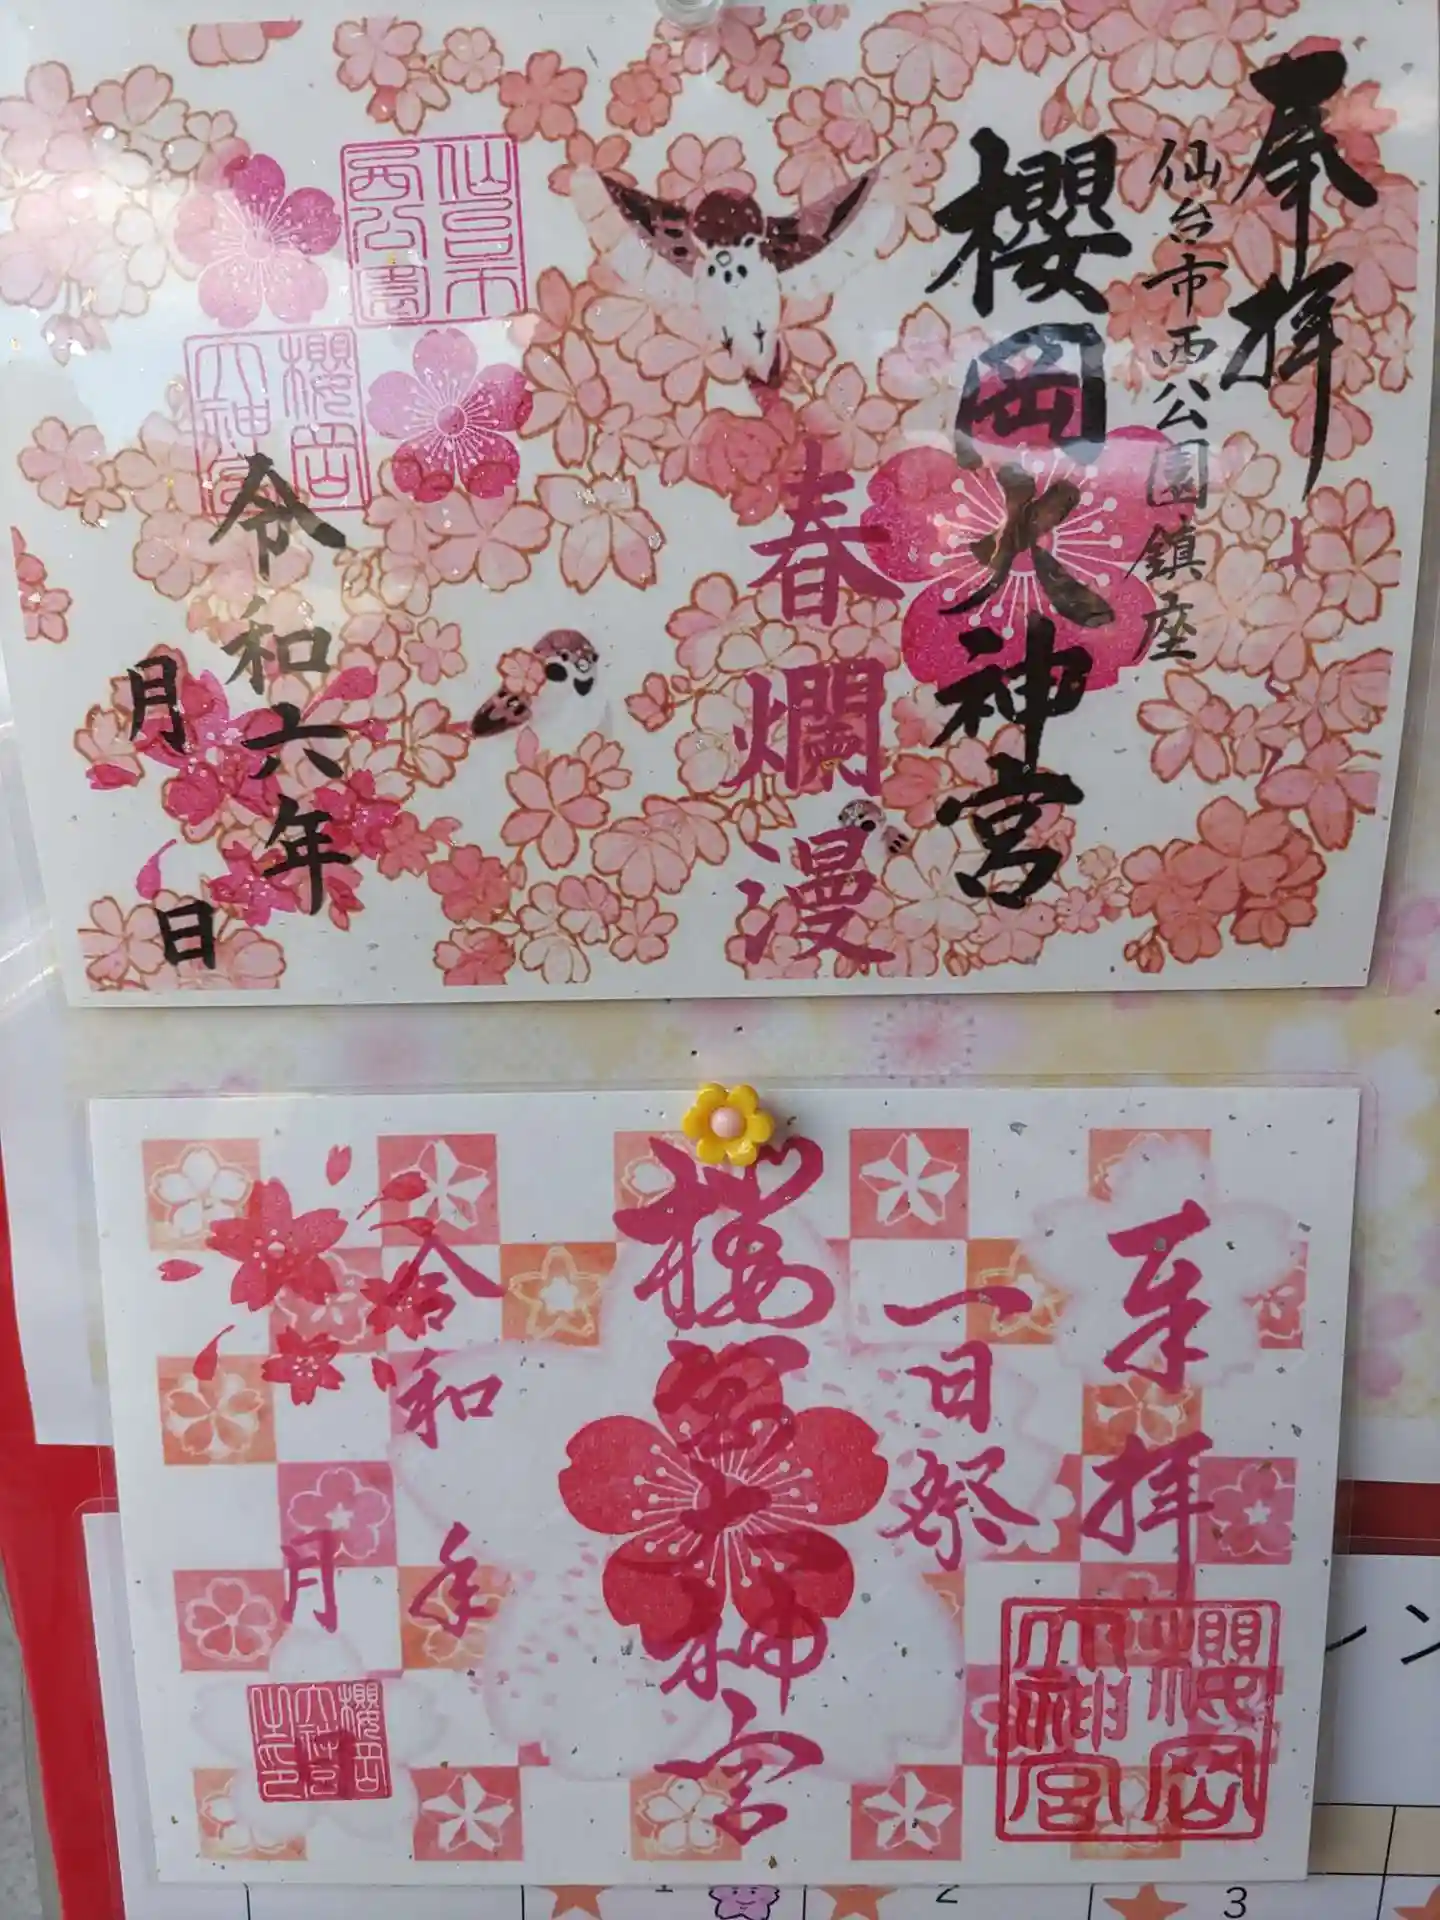 奉拝
仙台市西公園鎮座
櫻岡大神宮
春爛漫
仙台市
西公園
櫻岡
大神宮
令和六年
月
日
奉拝
一日祭
櫻岡大神宮
令和 年
月
櫻岡
大神宮
櫻岡
大神宮
之印
ン
1
2
3